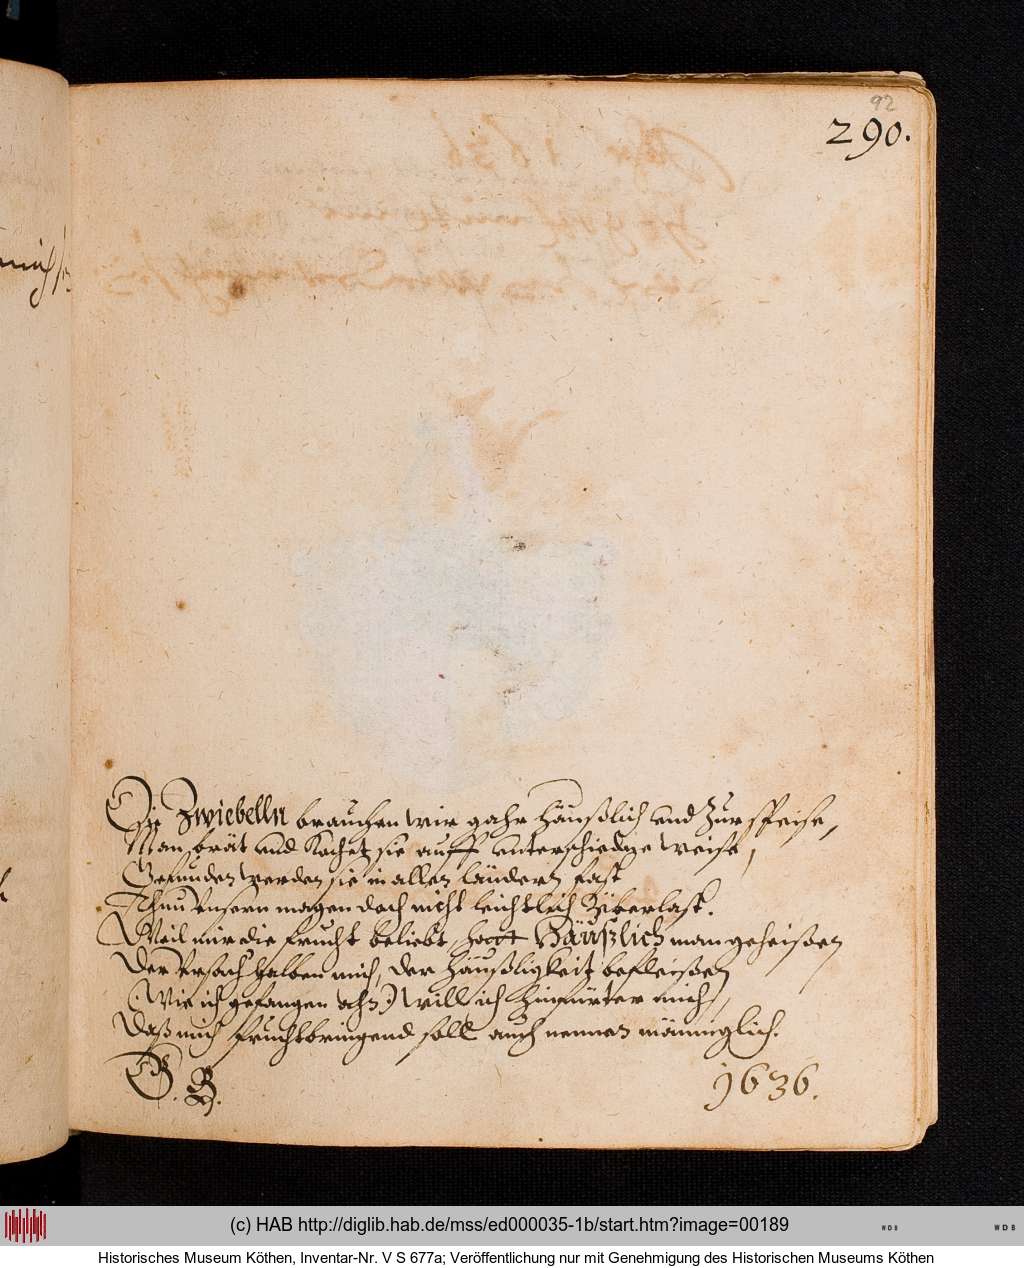 92
290.
Die Zwiebelln brauchen wir gahr häußlich und Zur speise,
Man brät und Kochet sie auff unterschiedne weise,
Gefunden werden sie in allen ländern fast
Thun Unsern magen doch nicht leichtlich Überlast.
Weil mir die frucht beliebt, hatt Häußlich man geheißen
Der Ursach halben mich, der häußligkeit befleißen
(Wie ich gefangen ahn) will ich hinfürter mich,
Daß mich fruchtbringend soll auch nennen männiglich.
1636.
(c) HAB http://diglib.hab.de/mss/ed000035-1b/start.htm?image=00189
WDB
WDB
Historisches Museum Köthen, Inventar-Nr. V S 677a; Veröffentlichung nur mit Genehmigung des Historischen Museums Köthen